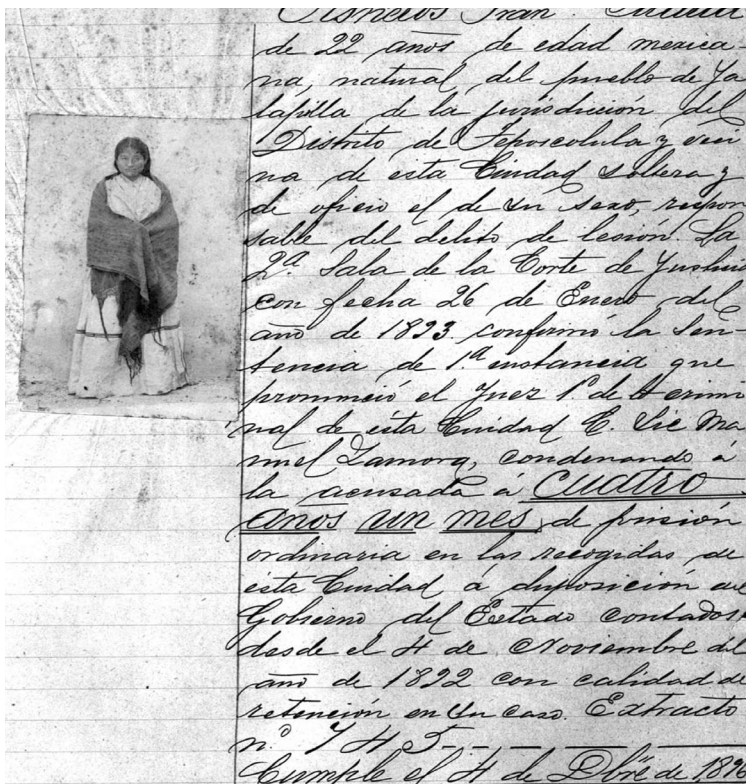 Cisneros
de 22 años de edad mexica-
na, natural del pueblo de Ja
lapilla de la jurisdicción del
Distrito de Teposcolula y veci
na de esta Ciudad soltera y
de oficio el de su sexo, respon
sable del delito de lesión. La
2ª Sala de la Corte de Justicia
con fecha 26 de Enero del
año de 1893 confirmó la Sen-
tencia de 1ª instancia que
pronunció el Juez 1º de
nal de esta Ciudad C. Lic Ma
nuel Zamora, condenando á
la acusada á Cuatro
años un mes de prisión
ordinaria en las recogidas de
esta Ciudad á disposición del
Gobierno del Estado contados
desde el 4 de Noviembre del
año de 1892 con calidad de
retención en su caso. Extracto
nº 745 - - -
Cumple el 4 de Dbre de